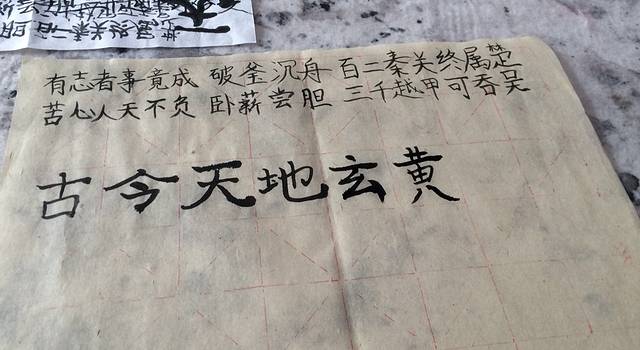 有志者事竟成 破釜沉舟 百二秦关终属楚
苦心人天不负 卧薪尝胆 三千越甲可吞吴
古今天地玄黄